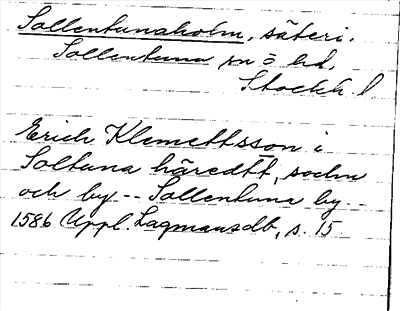 Sollentunaholm, säteri.
Sollentuna sn ö hd.
Stockh. l
Erich Klemettsson i
Soltuna häredtt, sochn
och by -- Sollentuna by --
1586 Uppl. Lagmansdb, s. 15